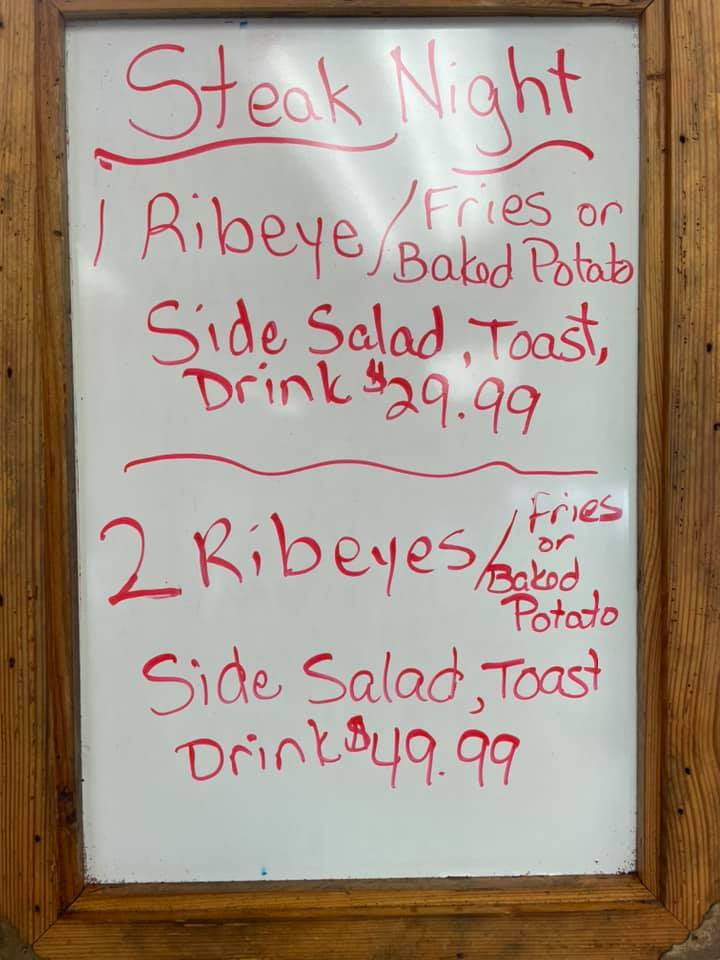 Steak Night
1 Ribeye / Fries or
Baked Potato
Side Salad, Toast,
Drink $29.99
2 Ribeyes / Fries
or
Baked
Potato
Side Salad, Toast
Drink $49.99